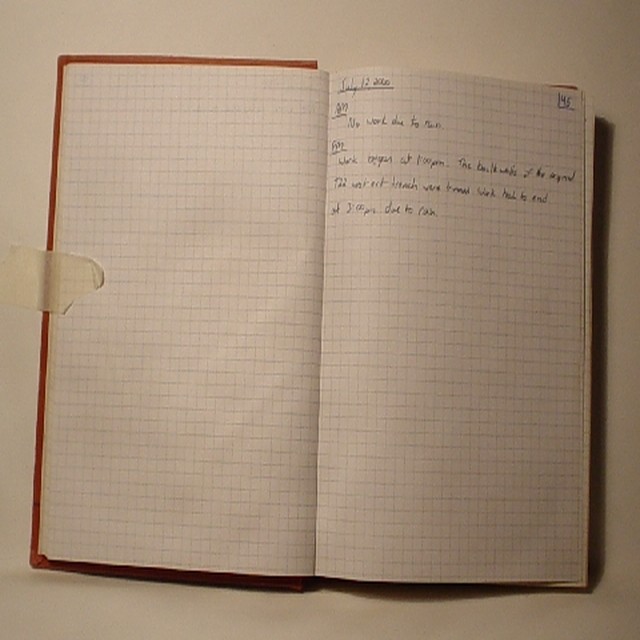 July 12 2000
45
AM
No work due to rain.
PM
Work began at 1:00pm. The baulk walls of the original
T22 west ext trench were trimmed. Work had to end
at 3:00pm due to rain.